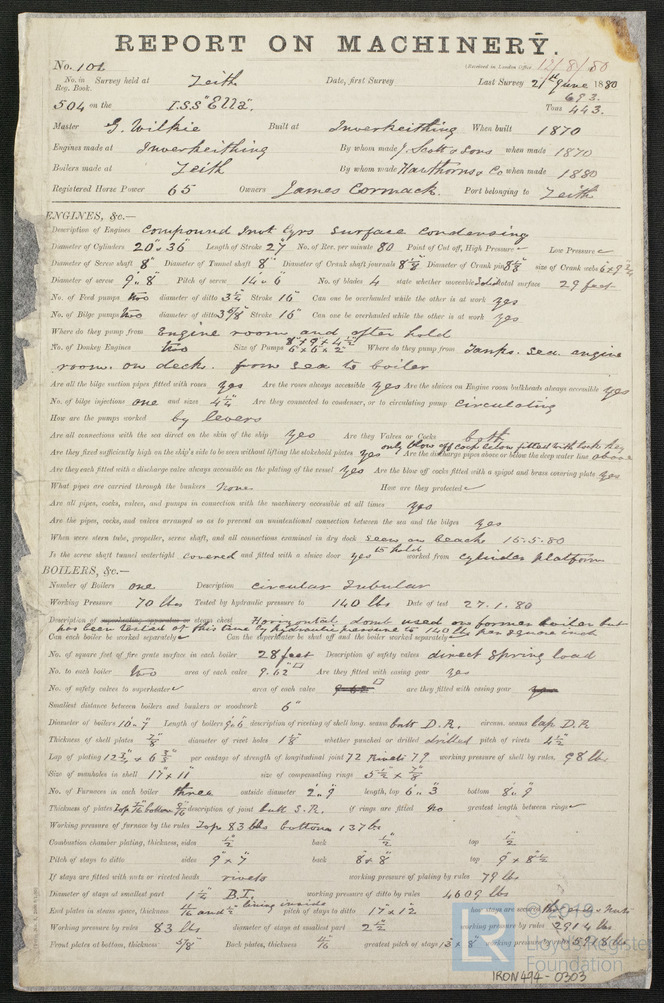 REPORT ON MACHINERY.
No. 101 (Received in London Office 17/8/80
No. in Reg. Book. Survey held at Leith Date, first Survey Last Survey 21st June 1880
693.
504 on the I.S.S "Ella". Tons 443.
Master G. Wilkie Built at Inverkeithing When built 1870
Engines made at Inverkeithing By whom made J. Scott & Sons when made 1870
Boilers made at Leith By whom made Hawthorns & Co when made 1880
Registered Horse Power 65 Owners James Cormack. Port belonging to Leith
ENGINES, &c.—
Description of Engines Compound Invt Cyrs Surface Condensing
Diameter of Cylinders 20" & 36" Length of Stroke 27" No. of Rev. per minute 80 Point of Cut off, High Pressure Low Pressure
Diameter of Screw shaft 8" Diameter of Tunnel shaft 8" Diameter of Crank shaft journals 8 1/8" Diameter of Crank pin 8 1/8" size of Crank webs
Diameter of screw 9" 8 Pitch of screw 14" 6 No. of blades 4 state whether moveable Solid total surface 29 feet
No. of Feed pumps two diameter of ditto 3 1/4 Stroke 16" Can one be overhauled while the other is at work yes
No. of Bilge pumps two diameter of ditto Stroke 16" Can one be overhauled while the other is at work yes
Where do they pump from Engine room and after hold
No. of Donkey Engines two Size of Pumps Where do they pump from Tanks. sea. engine
room. on deck. from sea to boiler
Are all the bilge suction pipes fitted with roses yes Are the roses always accessible yes Are the sluices on Engine room bulkheads always accessible yes
No. of bilge injections one and sizes 4 1/4" Are they connected to condenser, or to circulating pump circulating
How are the pumps worked by levers
Are all connections with the sea direct on the skin of the ship yes Are they Valves or Cocks both
only blow off cock below fitted with lock key
Are they fixed sufficiently high on the ship's side to be seen without lifting the stokehold plates yes Are the discharge pipes above or below the deep water line above
Are they each fitted with a discharge valve always accessible on the plating of the vessel yes Are the blow off cocks fitted with a spigot and brass covering plate yes
What pipes are carried through the bunkers none How are they protected
Are all pipes, cocks, valves, and pumps in connection with the machinery accessible at all times yes
Are the pipes, cocks, and valves arranged so as to prevent an unintentional connection between the sea and the bilges yes
When were stern tube, propeller, screw shaft, and all connections examined in dry dock seen on beach 15.5.80
Is the screw shaft tunnel watertight covered and fitted with a sluice door yes to hold worked from cylinder platform
BOILERS, &c.—
Number of Boilers one Description Circular Tubular
Working Pressure 70 lbs Tested by hydraulic pressure to 140 lbs Date of test 27.1.80
Description of superheating apparatus or steam chest Horizontal dome used on former boiler but
has been tested at this time by hydraulic pressure to 140 lbs per square inch
Can each boiler be worked separately Can the superheater be shut off and the boiler worked separately
No. of square feet of fire grate surface in each boiler 28 feet Description of safety valves direct Spring load
No. to each boiler two area of each valve 9.62" Are they fitted with easing gear yes
No. of safety valves to superheater area of each valve 9.62 are they fitted with easing gear yes
Smallest distance between boilers and bunkers or woodwork 6"
Diameter of boilers 10" 7 Length of boilers 9" 6 description of riveting of shell long. seams butt D.R. circum. seams lap D.R.
Thickness of shell plates 7/8" diameter of rivet holes 1 1/8" whether punched or drilled drilled pitch of rivets 4 1/2"
Lap of plating per centage of strength of longitudinal joint 72 Rivets 79 working pressure of shell by rules. 98 lbs.
Size of manholes in shell 17" x 11" size of compensating rings 5 1/2" x 7/8"
No. of Furnaces in each boiler three outside diameter 2" 9 length, top 6" 3 bottom 8" 9
Thickness of plates description of joint butt S.R. if rings are fitted no greatest length between rings
Working pressure of furnace by the rules Top 83 lbs bottom 137 lbs
Combustion chamber plating, thickness, sides 1/2" back 1/2" top 1/2"
Pitch of stays to ditto sides 9" x 7" back 8" x 8" top 9" x 8 1/2"
If stays are fitted with nuts or riveted heads rivets working pressure of plating by rules 79 lbs
Diameter of stays at smallest part 1 1/2" B.I. working pressure of ditto by rules 4609 lbs
End plates in steam space, thickness lining inside pitch of stays to ditto 17" x 12" how stays are secured
Working pressure by rules 83 lbs diameter of stays at smallest part 2 1/2" working pressure by rules 2914 lbs
Front plates at bottom, thickness 5/8" Back plates, thickness greatest pitch of stays 13 x 8 working pressure by rules
LR
© 2019
Lloyd's Register
Foundation
IRON494-0303